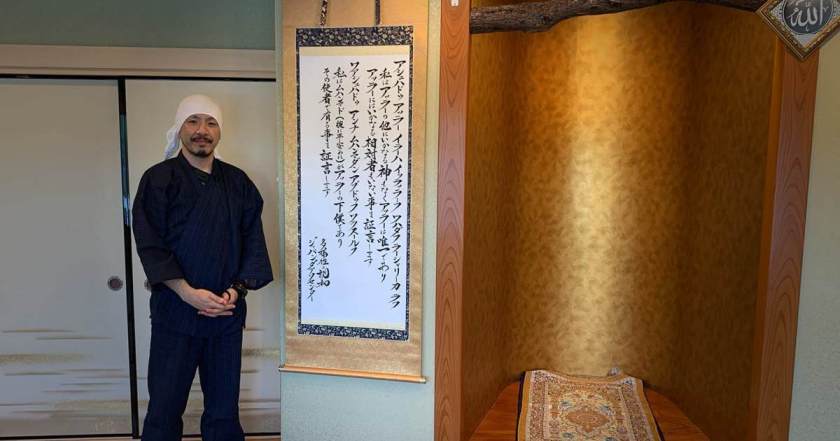 アシュハドゥ アッラー イラーハ イッラッラーフ
私はアッラーの他にいかなる神もなくアッラーは唯一であり
アッラーにいかなる相対者もいない事を証言します
ワアシュハドゥ アンナ ムハンマダン アブドゥフ
私はムハンマド（彼に平安あれ）がアッラーの下僕であり
その使者で有る事を証言します
الله